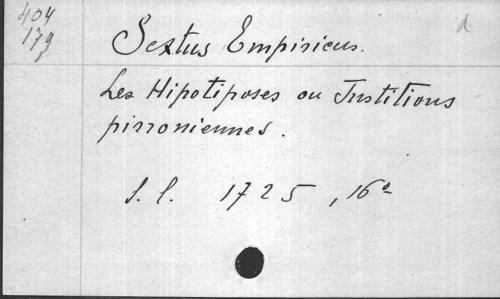 404
179
a
Sextus Empiricus.
Les Hipotiposes ou Institions
pirroniennes.
S. l. 1725, 16°